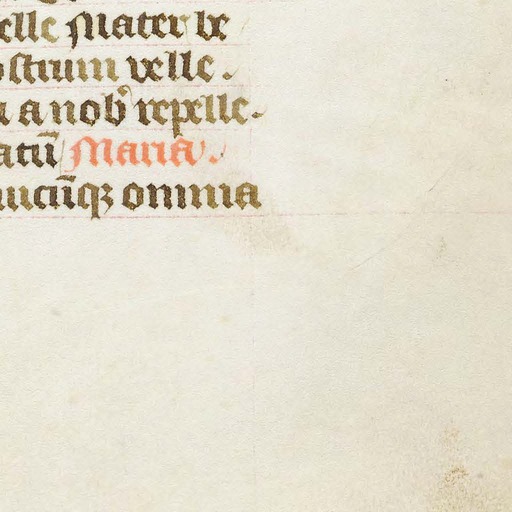 elle Mater be
ostrum velle.
a a nob᷒ repelle-
atū Maria.
cūqꝫ omnia